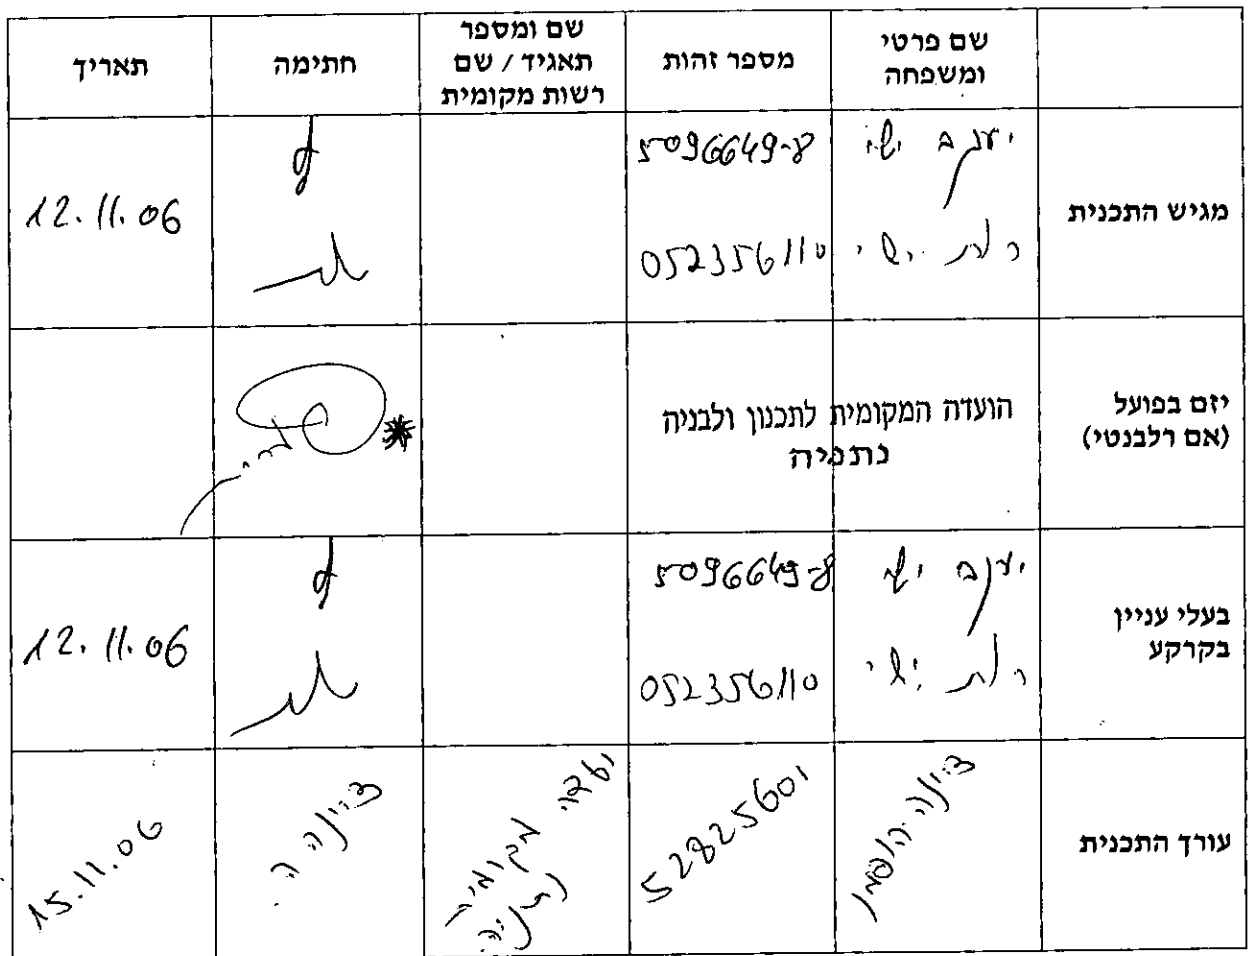 שם פרטי ומשפחה
מספר זהות
שם ומספר תאגיד / שם רשות מקומית
חתימה
תאריך
מגיש התכנית
יעקב ישי
5096649-8
רות ישי
052356110
12.11.06
יזם בפועל (אם רלבנטי)
הועדה המקומית לתכנון ולבניה
נתניה
*
בעלי עניין בקרקע
יעקב ישי
5096649-8
רות ישי
052356110
12.11.06
עורך התכנית
הופמן
52825601
ועדה מקומית
נתניה
15.11.06